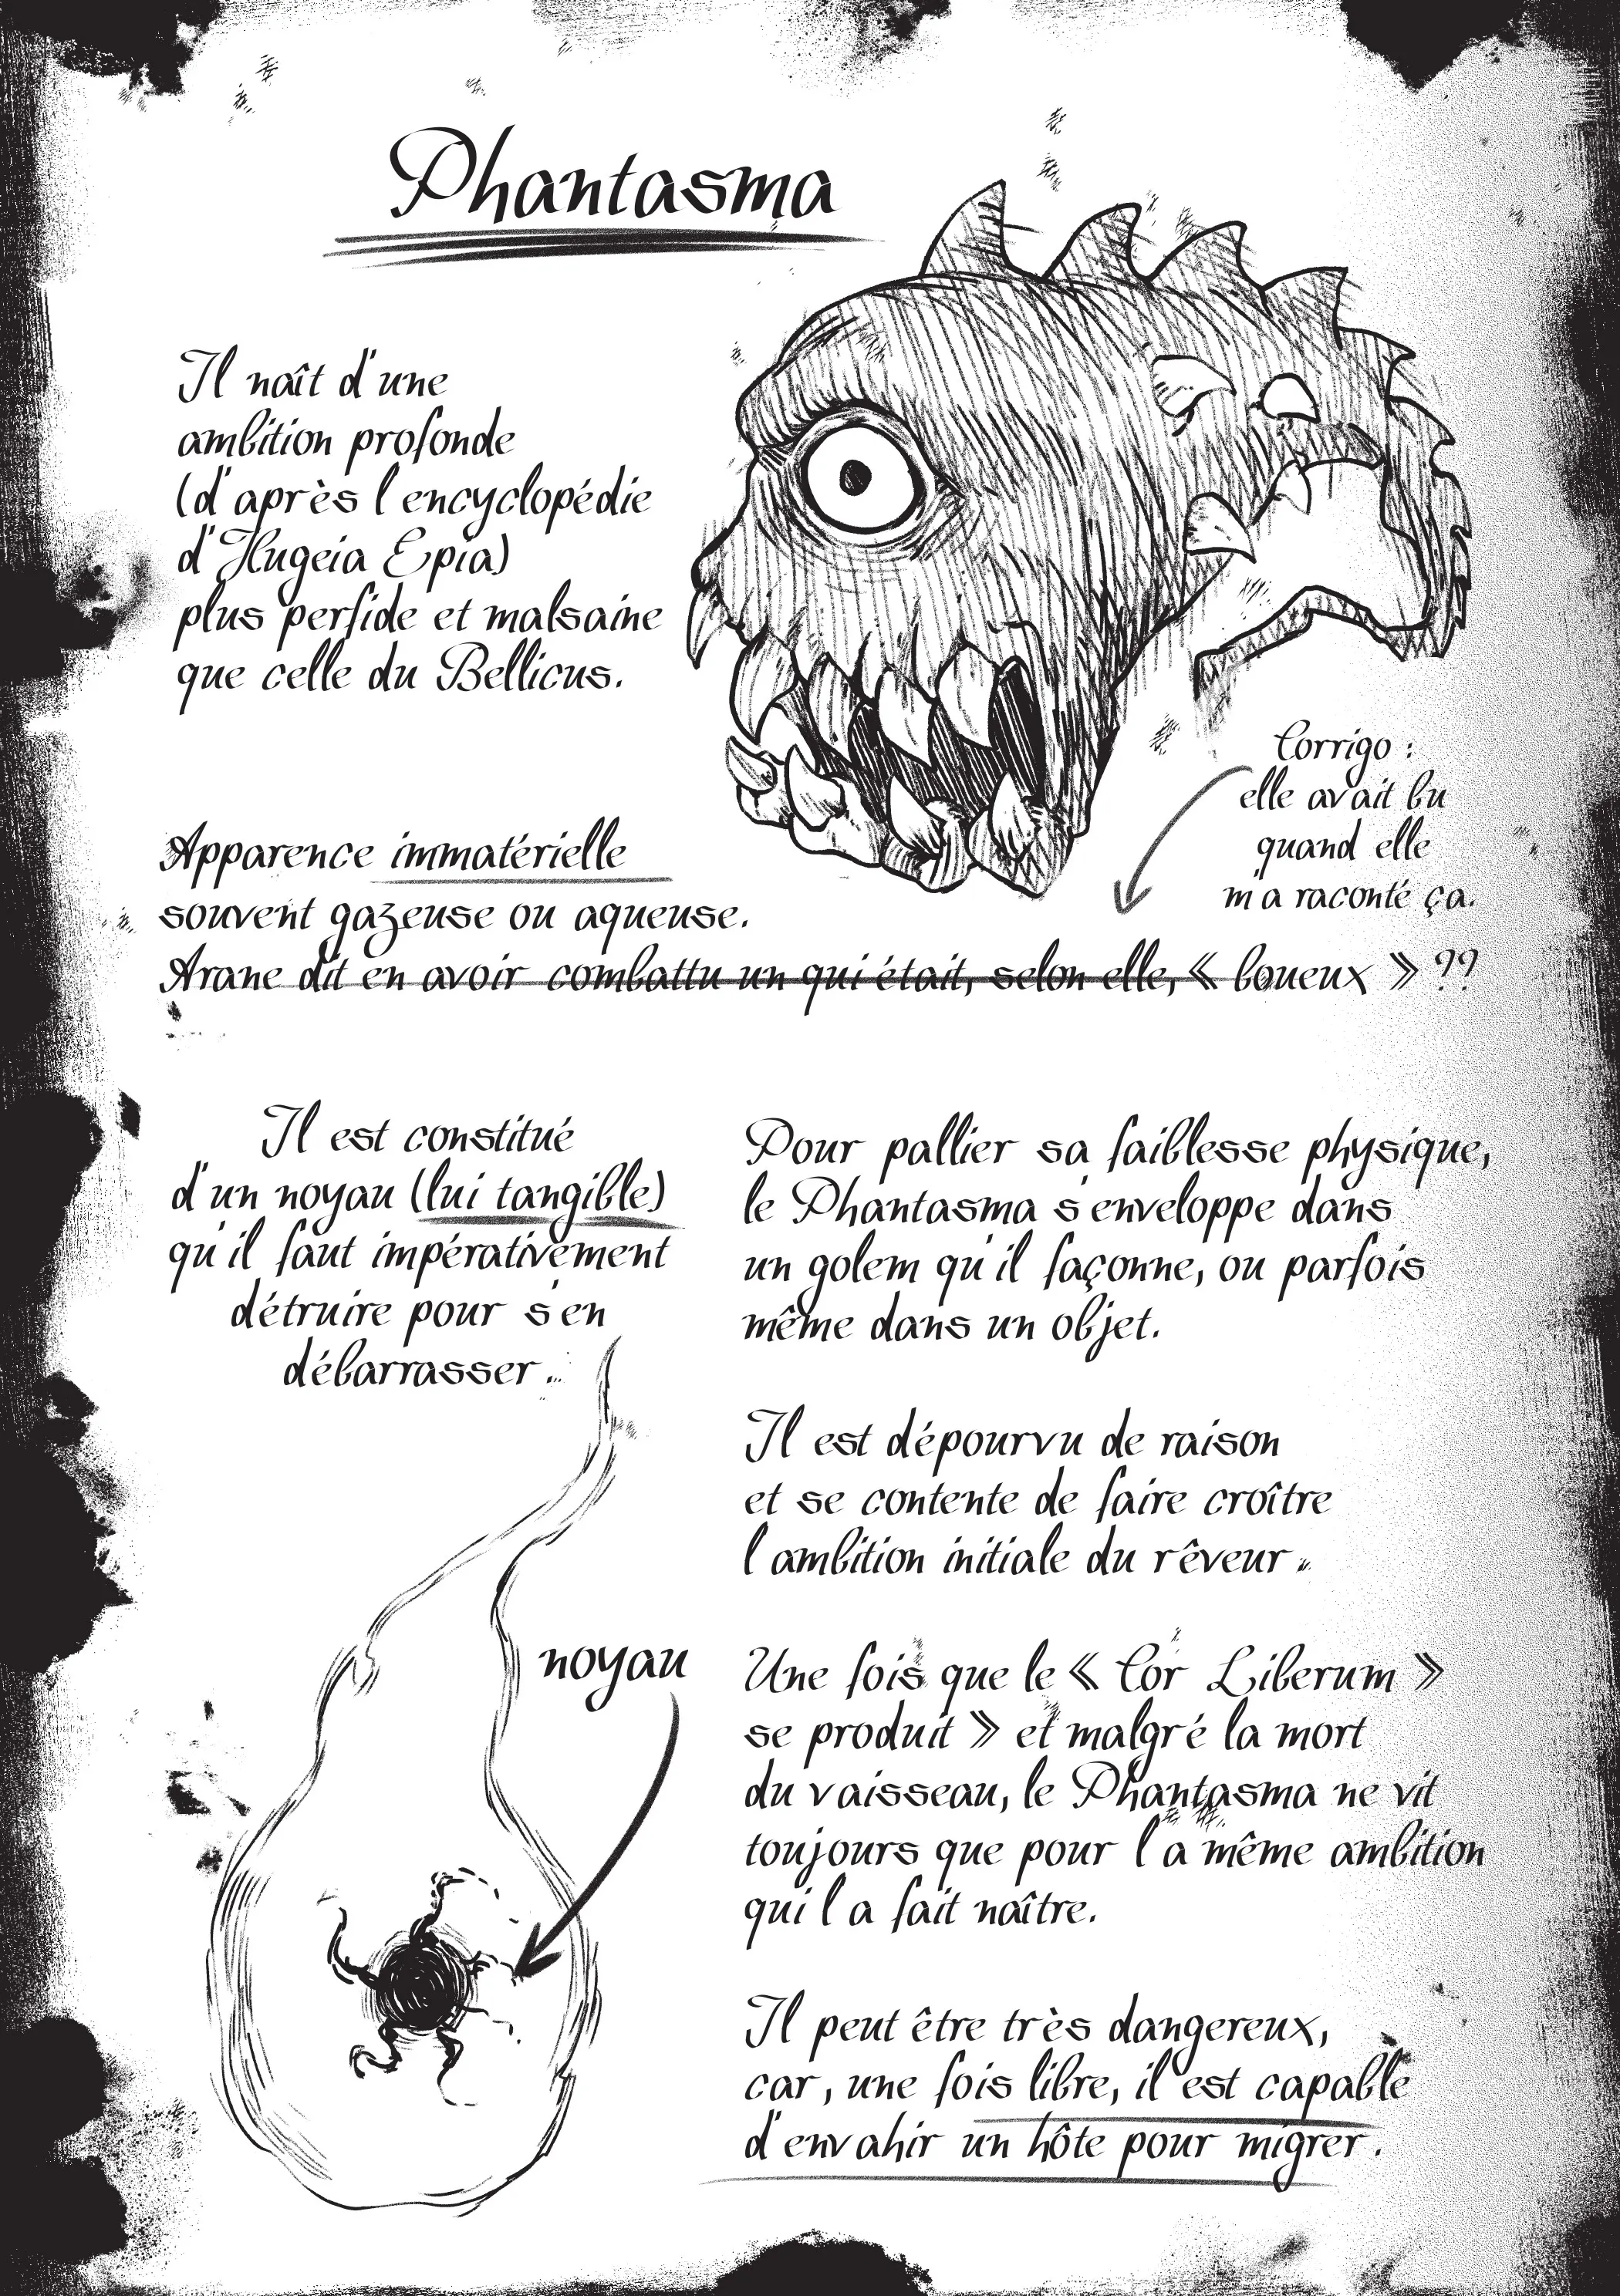 Phantasma
Il naît d'une
ambition profonde
(d'après l'encyclopédie
d'Hugeia Epia)
plus perfide et malsaine
que celle du Bellicus.
Corrigo :
elle avait bu
quand elle
m'a raconté ça.
Apparence immatérielle
souvent gazeuse ou aqueuse.
Arane dit en avoir combattu un qui était, selon elle, « boueux » ??
Il est constitué
d'un noyau (lui tangible)
qu'il faut impérativement
détruire pour s'en
débarrasser.
noyau
Pour pallier sa faiblesse physique,
le Phantasma s'enveloppe dans
un golem qu'il façonne, ou parfois
même dans un objet.
Il est dépourvu de raison
et se contente de faire croître
l'ambition initiale du rêveur.
Une fois que le « Cor Liberum »
se produit » et malgré la mort
du vaisseau, le Phantasma ne vit
toujours que pour la même ambition
qui l'a fait naître.
Il peut être très dangereux,
car, une fois libre, il est capable
d'envahir un hôte pour migrer.